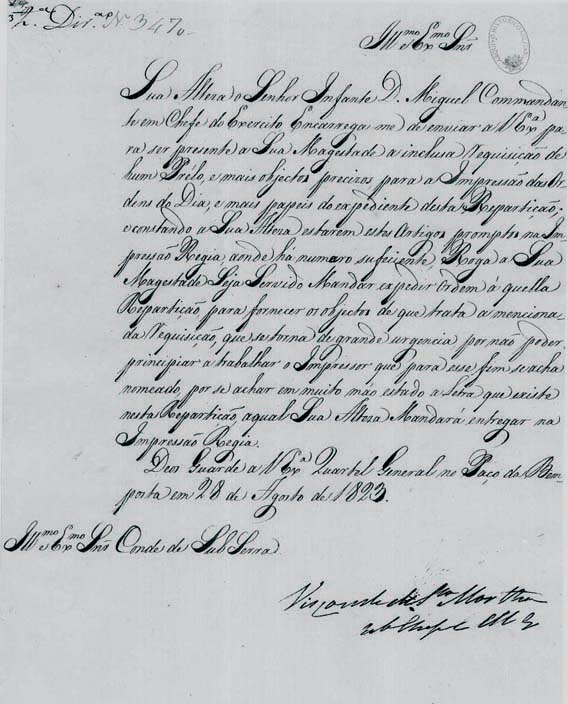 2.ª Dir.ªp N. 3470
Ill.mo e Ex.mo Snr
Sua Alteza o Senhor Infante D. Miguel Commandan
te em Chefe do Exercito Encarrega me de enviar a V Ex.ª pa
ra ser presente a Sua Magestade a inclusa Requisição de
hum Prélo, e mais objectos precizos para a Impressão das Or
dens do Dia, e mais papeis do expediente desta Repartição;
e constando a Sua Alteza estarem estes Artigos promptos na Im
pressão Regia, aonde há numero suficiente, Roga a Sua
Magestade Seja Servido Mandar expedir Ordem á quella
Repartição para fornecer os objectos de que trata a menciona
da Requisição, que se torna de grande urgencia por não poder
principiar a trabalhar o Impressor que para esse fim se acha
nomeado, por se achar em muito máo estado a Letra que existe
nesta Repartição, a qual Sua Alteza Mandará entregar na
Impressão Regia.
Deos Guarde a V Ex.ª Quartel General no Paço da Bem
posta em 28 de Agosto de 1823.
Ill.mo e Ex.mo Snr Conde de Sub Serra
Visconde de Sta Martha